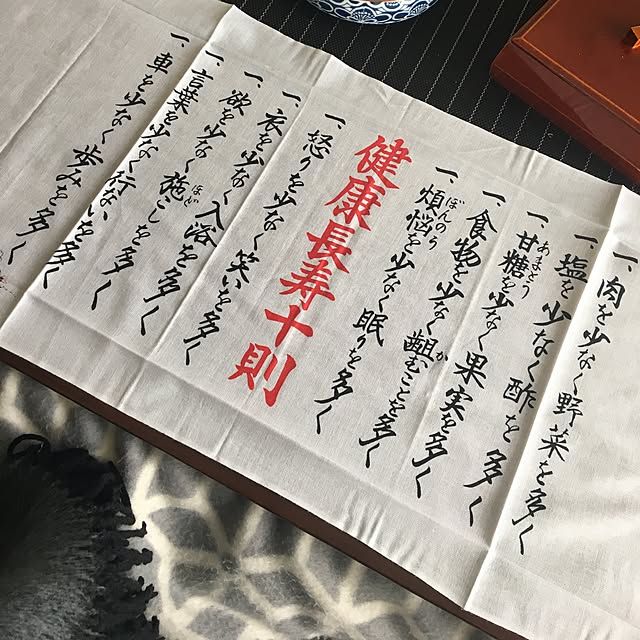 一、肉を少なく野菜を多く
一、塩を少なく酢を多く
あまとう
一、甘糖を少なく果実を多く
か
一、食物を少なく齟むことを多く
ぼんのう
一、煩悩を少なく眠りを多く
健康長寿十則
一、怒りを少なく笑いを多く
一、衣を少なく入浴を多く
ほど
一、欲を少なく施こしを多く
一、言葉を少なく行ないを多く
一、車を少なく歩みを多く